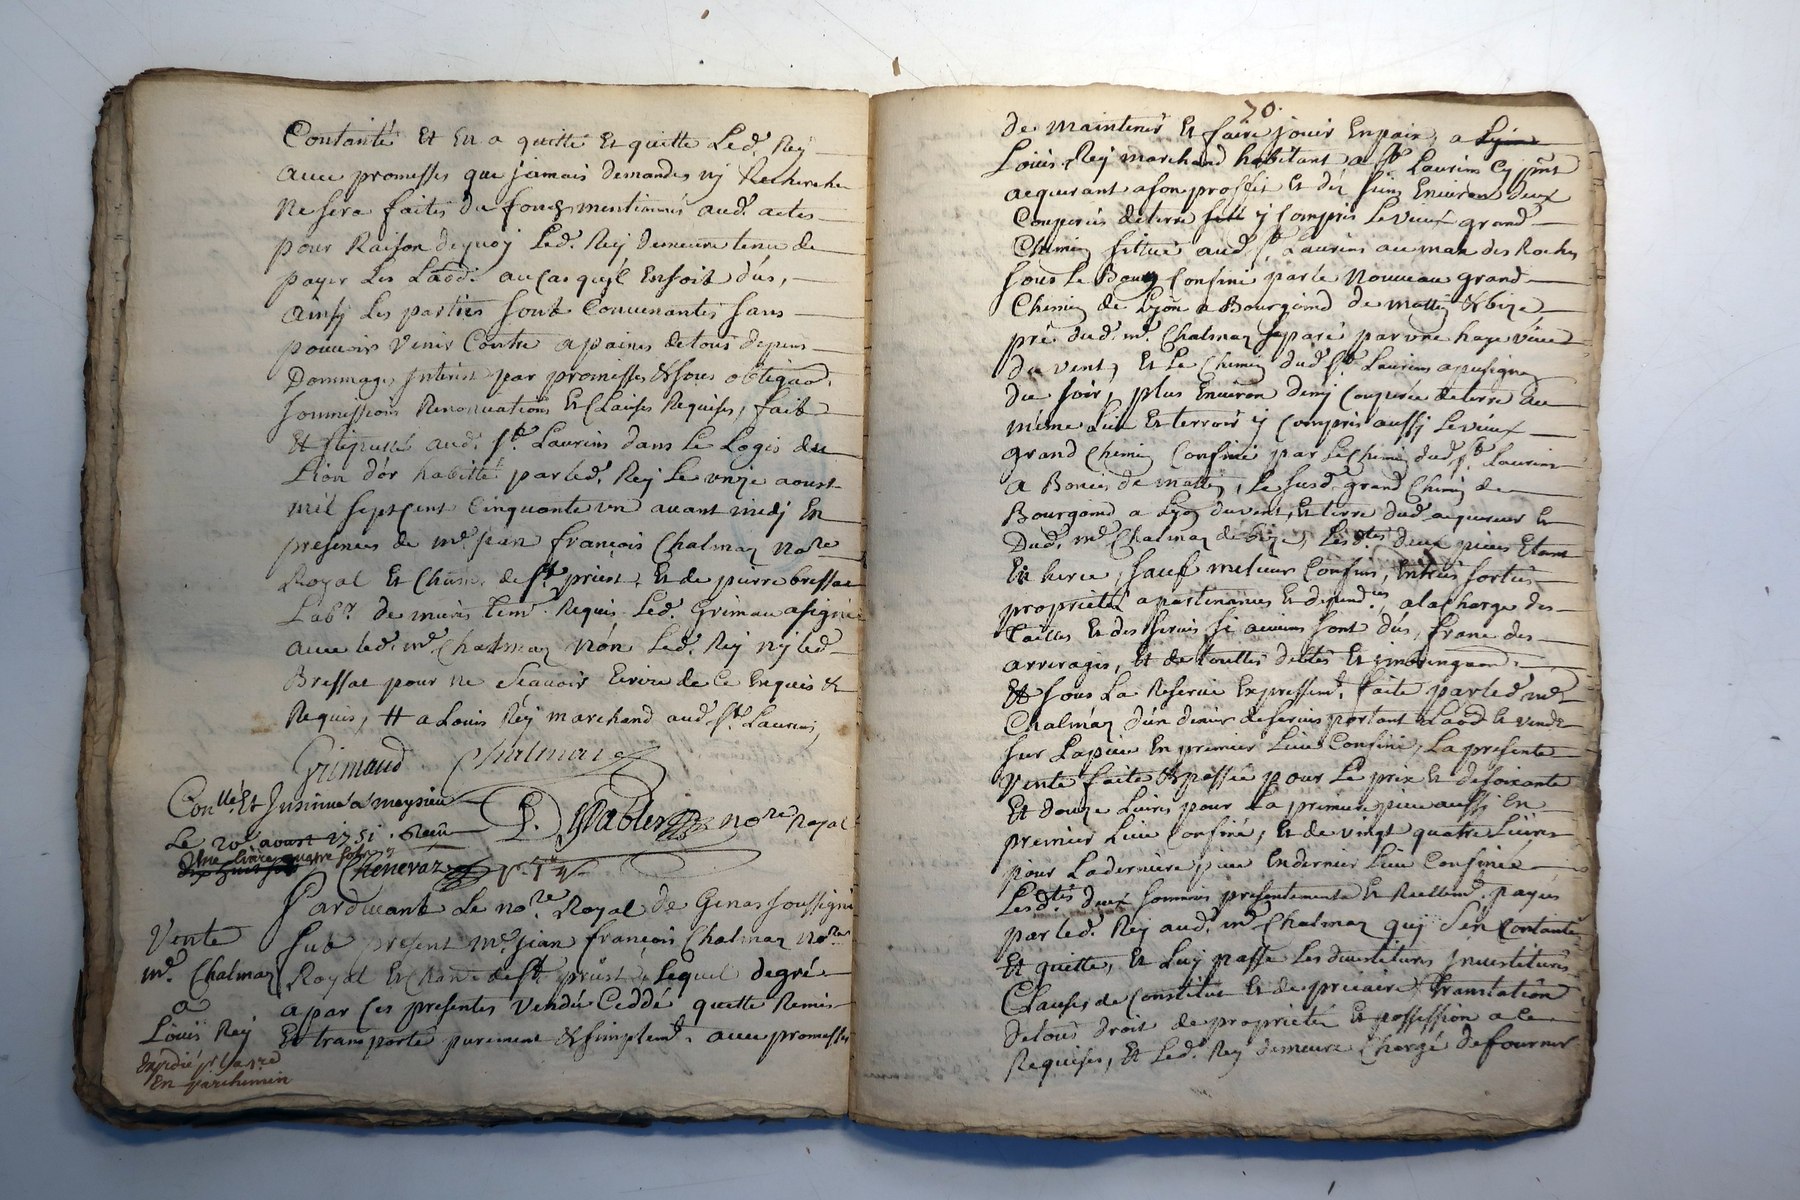 Contanté Et En a quitté Et quitte Led. Rey
avec promesses que jamais demandes ny Recherche
Ne sera faites du fonds mentionnés aud. actes
pour Raison de quoy Led. Rey demeure tenu de
payer Les Laod. au Cas qu'jl En soit dus,
ainsy Les parties sont Convenantés sans
pouvoir Venir Contre a paines de tous depens
Dommages Interest par promesses & sous obligaõn.
soumissions Renonciations Et Clauses Requises, fait
Et stipullé aud. St. Laurins dans Le Logis du
Lion d'or habitté par led. Rey Le unze aoust
mil sept Cent Cinquante un avant midy En
presences de me. jean françois Chalmaz nore
Royal Et Chatn. de St. priest, Et de pierre bressat
Labr. de mures tem. Requis Led. Grimau a signé
avec led. me. Chalmaz non Led. Rey ny led.
Bressat pour ne sçavoir Ecrire de Ce Enquis &
Requis, # a Louis Rey marchand aud. St. Laurins,
Grimaud Chalmaz
Conlle. Et Insinué a meysieu
Le 20e. aoust 1751. Reçu
une Livre quatre sols
Chenevaz
nore Royal
Pardevant Le nore. Royal de Genas soussigné
Vente
me. Chalmaz
a
Louis Rey
Expedié
En parchemin
fut present me. jean françois Chalmaz nore.
Royal Et Chatn de St. priest, Lequel de gré
a par Ces presentes Vendu Ceddé quitte Remis
Et transporte purement & simplemt. avec promesses
70.
de maintenir Et faire jouir En paix, a Lyon
Louis Rey marchand habitant a St. Laurins Cy pnt
acquerant a son proffit Et des siens Environ deux
Couperées de terre sell y Compris Le Vieux grand
Chemin sittué aud. St. Laurins au mas des Roches
sous Le Bourg Confiné par le Nouveau grand
Chemin de Lyon a Bourgoind de matin & bize
pré dud. me. Chalmaz separé par une haye vive
du vent, Et Le Chemin dud. St. Laurins a pusignan
du soir, plus Environ demy Couperée de terre au
même Lieu Et terroir y Compris aussy Le vieux
grand Chemin Confiné par Le Chemin dud. St. Laurins
a de matin, Le susd. grand Chemin de
Bourgoind a Lyon du vent, Et terre dud. acquereur Et
Dud. me. Chalmaz de bize, Lesdtes deux pieces Etant
En herie, sauf meilleurs Confins, Entrées sorties
proprietés apartenances Et dependces, a la Charge des
tailles Et des servis si aucuns sont dus, franc des
arrerages, Et de touttes dettes Et
Et sous La Reserve Expressemt. faite par led. me.
Chalmaz d'un denier de servis portant Laod Et vende
sur La piece En premier Lieu Confiné, La presente
Vente faite & passée pour Le prix Et de soixante
Et douze Livres pour La premiere piece aussi En
premier Lieu Confiné, Et de vingt quatre Livres
pour La derniere piece En dernier Lieu Confinée
Lesdtes deux sommes presentement Et Reellemt. payés
par led. Rey aud. me. Chalmaz quj s'en Contante
Et quitte, Et Luy passe Les devestitures jnvestitures
Clauses de Constitut Et de precaire translation
de tous droit de proprieté Et possession a Ce
Requises, Et Led. Rey demeure Chargé de fournir